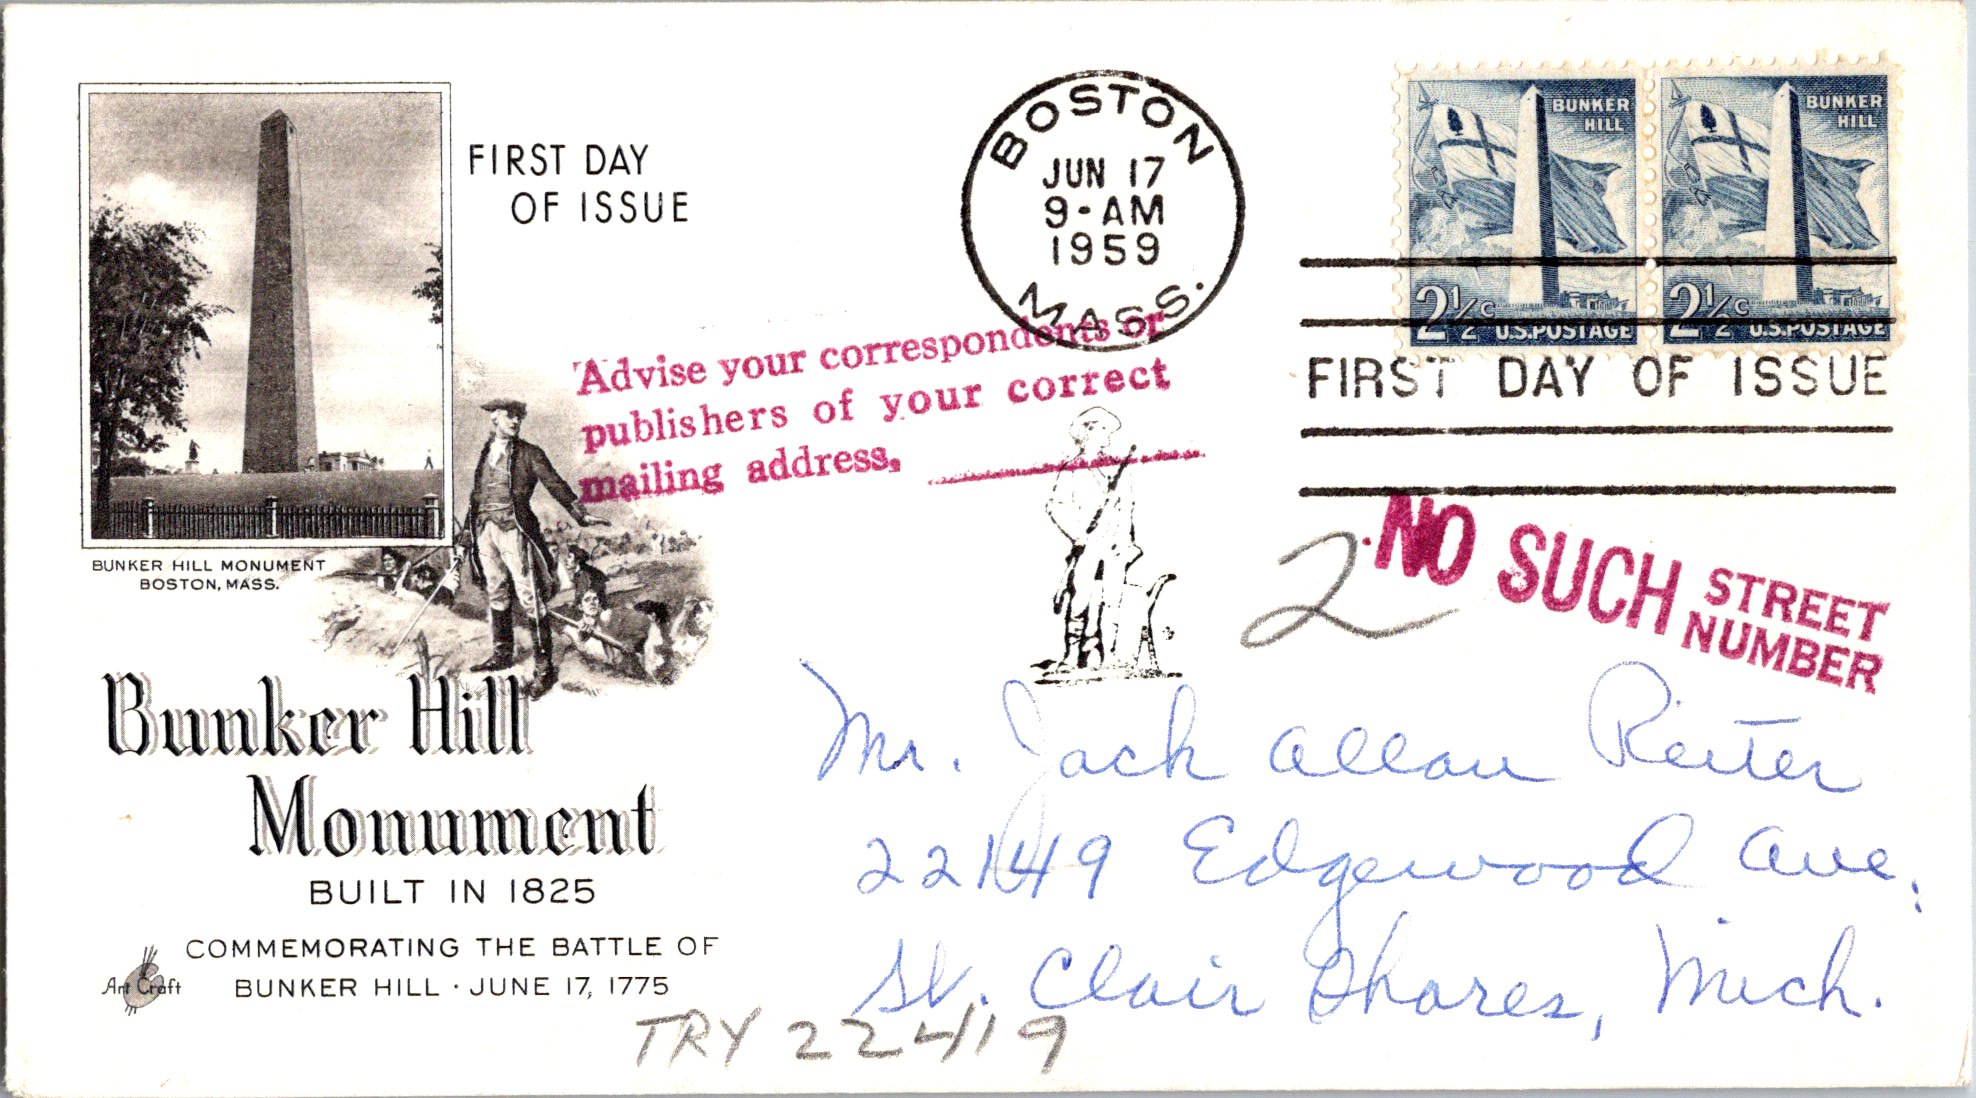 FIRST DAY
OF ISSUE
BUNKER HILL MONUMENT
BOSTON, MASS.
Bunker Hill
Monument
BUILT IN 1825
COMMEMORATING THE BATTLE OF
BUNKER HILL · JUNE 17, 1775
Art Craft
BOSTON
JUN 17
9-AM
1959
MASS.
BUNKER
HILL
2½c U.S.POSTAGE
BUNKER
HILL
2½c U.S.POSTAGE
FIRST DAY OF ISSUE
Advise your correspondents or
publishers of your correct
mailing address.
2
NO SUCH STREET
NUMBER
Mr. Jack Allan Reiter
22149 Edgewood Ave,
St. Clair Shores, Mich.
TRY 22419